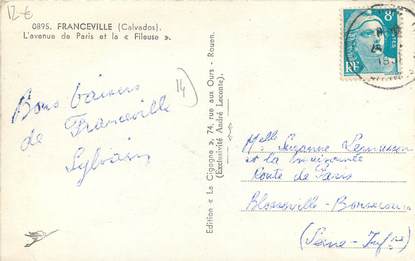 12€
0895. FRANCEVILLE (Calvados).
L'avenue de Paris et la « Fileuse ».
14
Bons baisers
de Franceville
Sylvain
Edition « La Cigogne », 74, rue aux Ours - Rouen.
(Exclusivité André Leconte).
8F
RF
Melle Suzanne
et la
Route de Paris
Blosseville-Bonsecours
(Seine-Infre)